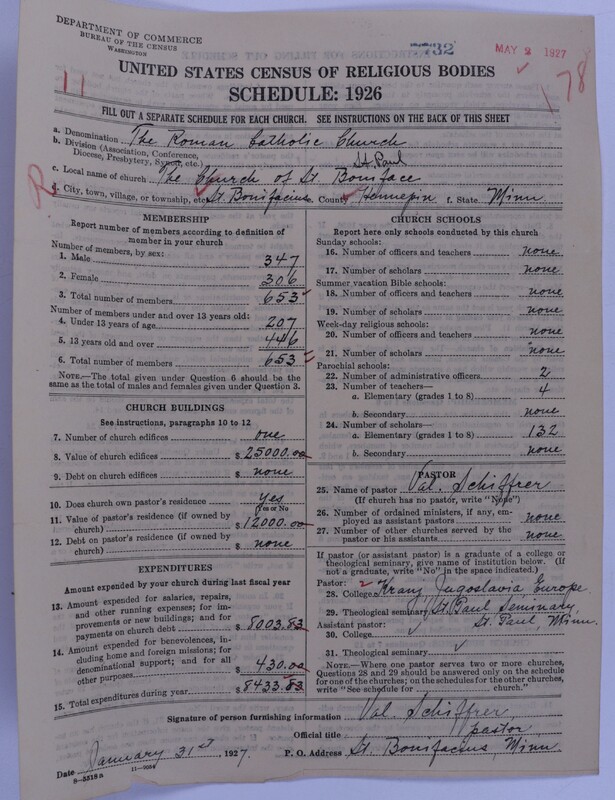 DEPARTMENT OF COMMERCE
BUREAU OF THE CENSUS
WASHINGTON
32
MAY 2 1927
11
178
UNITED STATES CENSUS OF RELIGIOUS BODIES
SCHEDULE: 1926
FILL OUT A SEPARATE SCHEDULE FOR EACH CHURCH. SEE INSTRUCTIONS ON THE BACK OF THIS SHEET
a. Denomination The Roman Catholic Church
b. Division (Association, Conference, Diocese, Presbytery, Synod, etc.) St. Paul
c. Local name of church The Church of St. Boniface
d. City, town, village, or township, etc. St. Bonifacius e. County Hennepin f. State Minn
R
MEMBERSHIP
Report number of members according to definition of
member in your church
Number of members, by sex:
1. Male 347
2. Female 306
3. Total number of members 653
Number of members under and over 13 years old:
4. Under 13 years of age 207
5. 13 years old and over 446
6. Total number of members 653
NOTE.—The total given under Question 6 should be
same as the total of males and females given under Question 3.
CHURCH BUILDINGS
See instructions, paragraphs 10 to 12
7. Number of church edifices one
8. Value of church edifices $ 25000.00
9. Debt on church edifices $ none
10. Does church own pastor's residence Yes
Yes or No
11. Value of pastor's residence (if owned by
church) $ 12000.00
12. Debt on pastor's residence (if owned by
church) $ none
EXPENDITURES
Amount expended by your church during last fiscal year
13. Amount expended for salaries, repairs,
and other running expenses; for im-
provements or new buildings; and for
payments on church debt $ 8003.83
14. Amount expended for benevolences, in-
cluding home and foreign missions; for
denominational support; and for all
other purposes $ 430.00
15. Total expenditures during year $ 8433.83
CHURCH SCHOOLS
Report here only schools conducted by this church
Sunday schools:
16. Number of officers and teachers none
17. Number of scholars none
Summer vacation Bible schools:
18. Number of officers and teachers none
19. Number of scholars none
Week-day religious schools:
20. Number of officers and teachers none
21. Number of scholars none
Parochial schools:
22. Number of administrative officers 2
23. Number of teachers—
a. Elementary (grades 1 to 8) 4
b. Secondary none
24. Number of scholars—
a. Elementary (grades 1 to 8) 132
b. Secondary none
PASTOR
25. Name of pastor Val. Schiffrer
(If church has no pastor, write "None")
26. Number of ordained ministers, if any, em-
ployed as assistant pastors none
27. Number of other churches served by the
pastor or his assistants none
If pastor (or assistant pastor) is a graduate of a college or
theological seminary, give name of institution below. (If
not a graduate, write "No" in the space indicated.)
Pastor: 2
28. College Kranj Jugoslavia Europe
29. Theological seminary St. Paul Seminary,
Assistant pastor: St. Paul, Minn.
30. College
31. Theological seminary
NOTE.—Where one pastor serves two or more churches,
Questions 28 and 29 should be answered only on the schedule
for one of the churches; on the schedules for the other churches,
write "See schedule for church."
Signature of person furnishing information Val. Schiffrer
Official title pastor
Date January 31st, 1927. P. O. Address St. Bonifacius, Minn.
8—5518a 11—9054